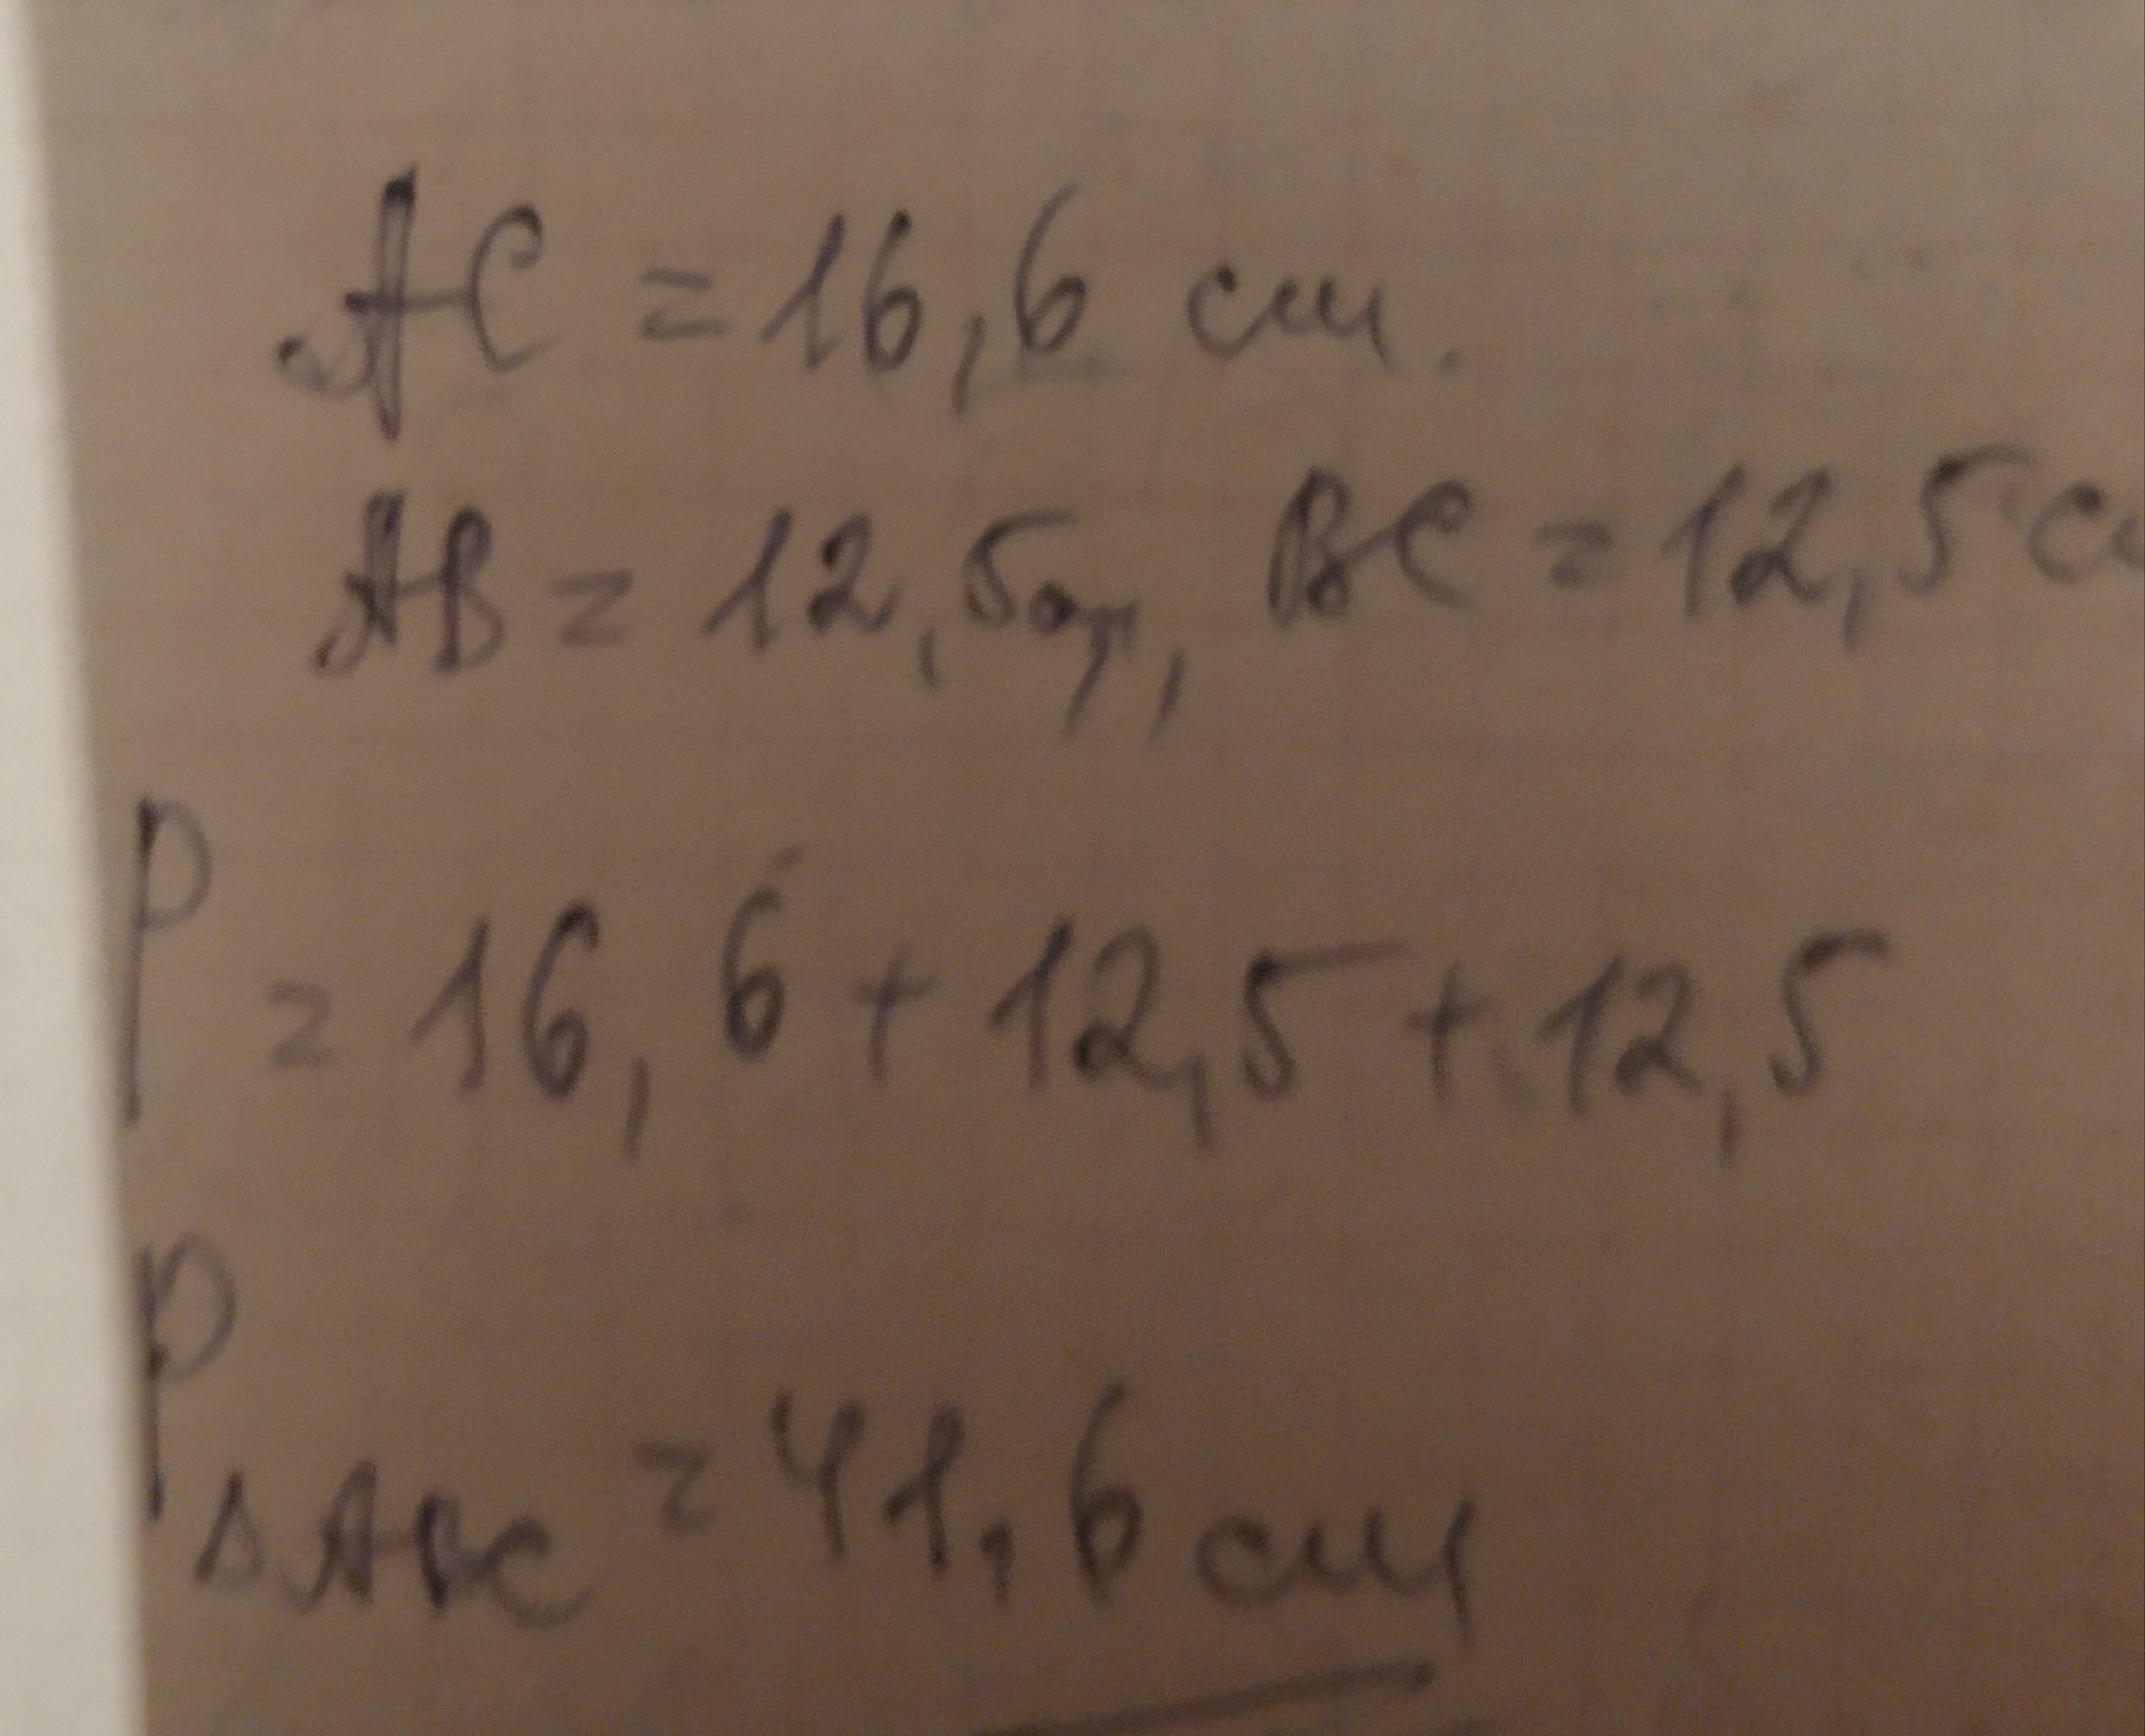 AC = 16,6 см.
AB = 12,5 см, BC = 12,5 с
P = 16,6 + 12,5 + 12,5
P ΔABC = 41,6 см